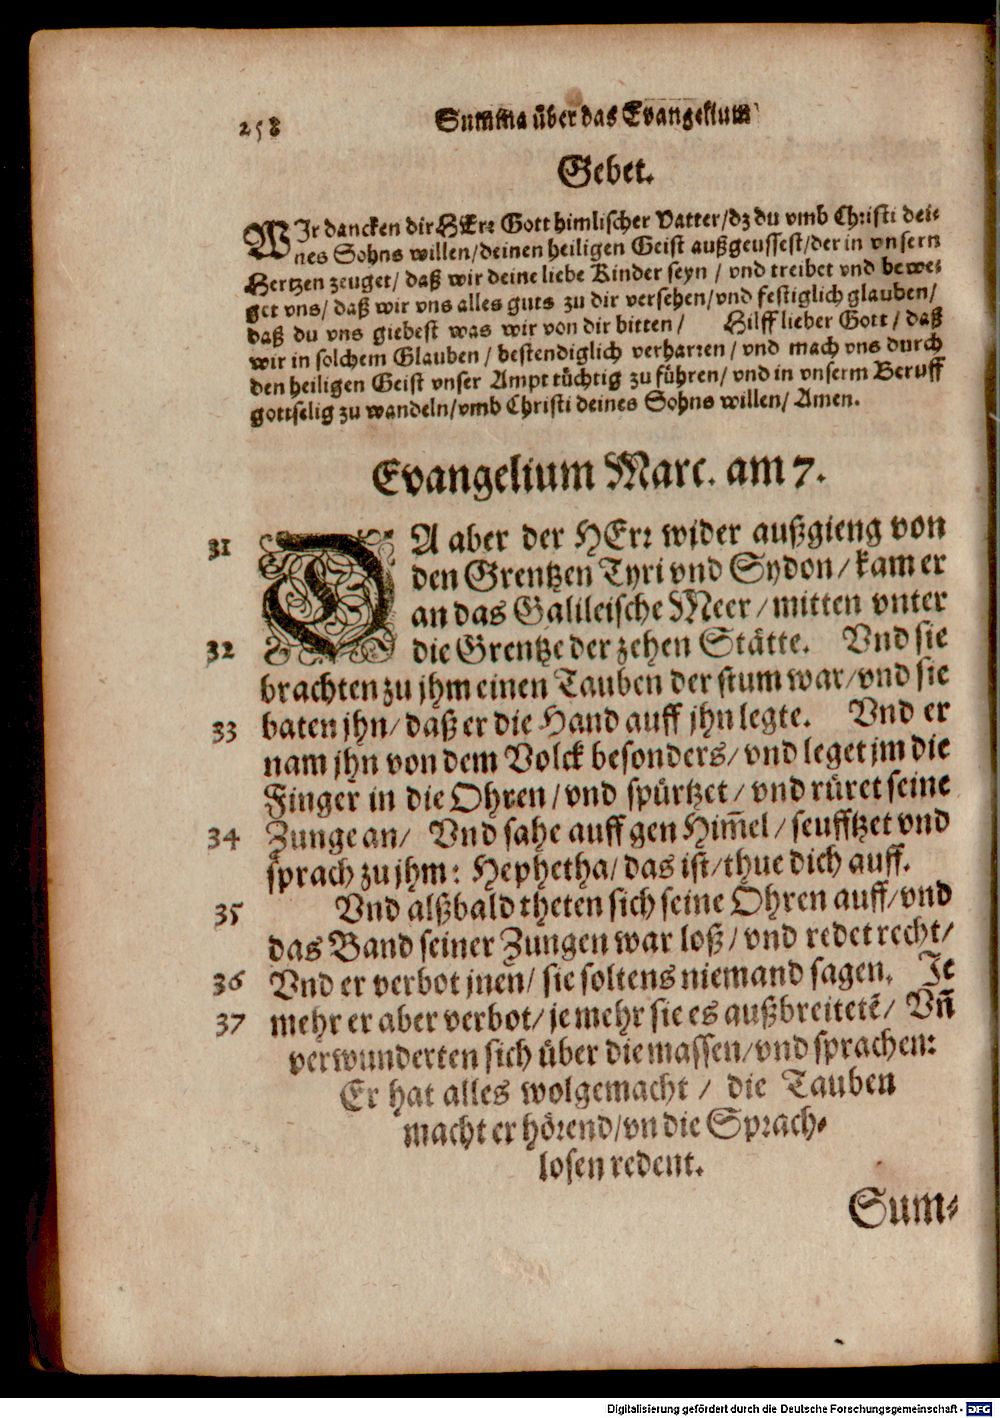 258 Summa über das Evangelium
Gebet.
WIr dancken dir HErr Gott himlischer Vatter/dz du vmb Christi dei-
nes Sohns willen/deinen heiligen Geist außgeussest/der in vnsern
Hertzen zeuget/ daß wir deine liebe Kinder seyn / vnd treibet vnd bewe-
get vns/ daß wir vns alles guts zu dir versehen/vnd festiglich glauben/
daß du vns giebest was wir von dir bitten / Hilff lieber Gott / daß
wir in solchem Glauben / bestendiglich verharren / vnd mach vns durch
den heiligen Geist vnser Ampt tüchtig zu führen/ vnd in vnserm Beruff
gottselig zu wandeln/vmb Christi deines Sohns willen/ Amen.
Evangelium Marc. am 7.
31 DA aber der HErr wider außgieng von
den Grentzen Tyri vnd Sydon/ kam er
an das Galileische Meer / mitten vnter
32 die Grentze der zehen Stätte. Vnd sie
brachten zu jhm einen Tauben der stum war/vnd sie
33 baten jhn/ daß er die Hand auff jhn legte. Vnd er
nam jhn von dem Volck besonders/ vnd leget jm die
Finger in die Ohren / vnd spürtzet / vnd rüret seine
34 Zunge an/ Vnd sahe auff gen Him̃el / seufftzet vnd
sprach zu jhm: Hephetha/ das ist/thue dich auff.
35 Vnd alßbald theten sich seine Ohren auff/vnd
das Band seiner Zungen war loß / vnd redet recht/
36 Vnd er verbot jnen/ sie soltens niemand sagen. Je
37 mehr er aber verbot/ je mehr sie es außbreitetẽ/ Vñ
verwunderten sich über die massen/vnd sprachen:
Er hat alles wolgemacht / die Tauben
macht er hörend/vn die Sprach-
losen redent.
Sum-
Digitalisierung gefördert durch die Deutsche Forschungsgemeinschaft - DFG